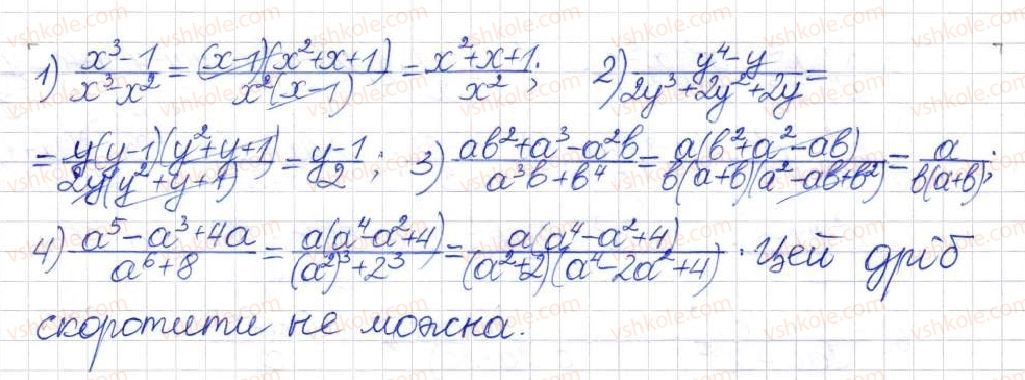 1) (x³-1)/(x³-x²) = ((x-1)(x²+x+1))/(x²(x-1)) = (x²+x+1)/x²; 2) (y⁴-y)/(2y³+2y²+2y) =
= (y(y-1)(y²+y+1))/(2y(y²+y+1)) = (y-1)/2; 3) (ab²+a³-a²b)/(a³b+b⁴) = (a(b²+a²-ab))/(b(a+b)(a²-ab+b²)) = a/(b(a+b));
4) (a⁵-a³+4a)/(a⁶+8) = (a(a⁴-a²+4))/((a²)³+2³) = (a(a⁴-a²+4))/((a²+2)(a⁴-2a²+4)). Цей дріб
скоротити не можна.